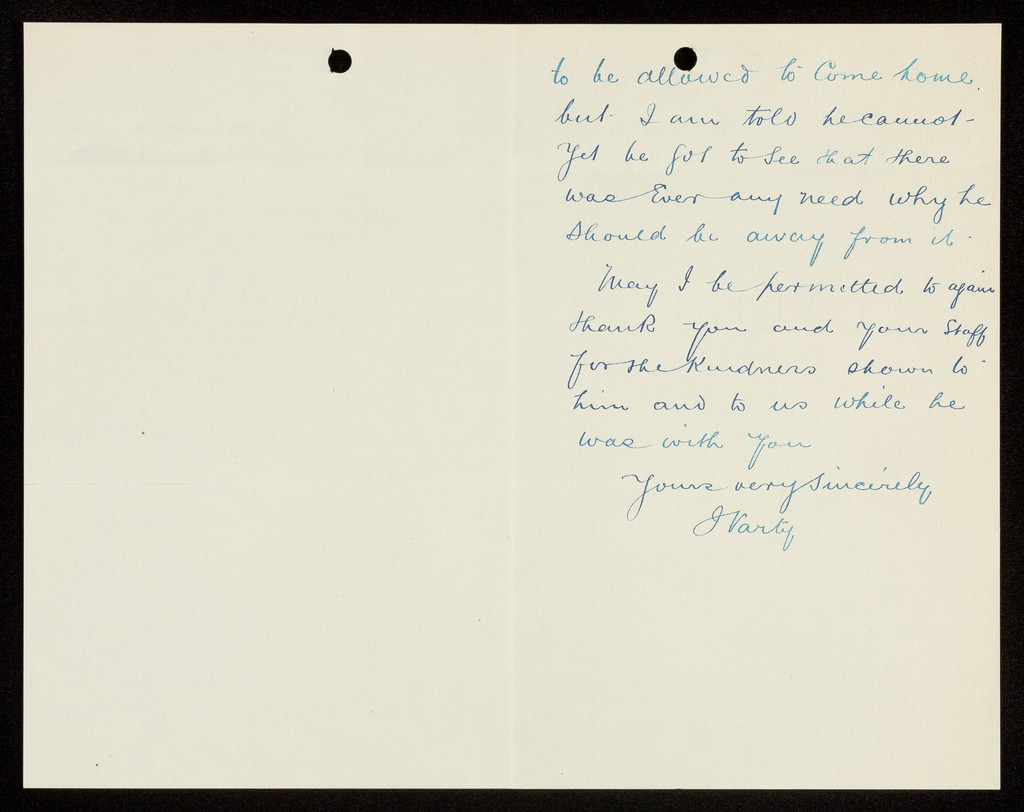 to be allowed to Come home
but I am told he cannot -
Yet be got to See that there
was Ever any need why he
Should be away from it.
May I be permitted to again
thank you and your Staff
for the Kindness shown to
him and to us while he
was with You
Yours very Sincerely,
J Varty